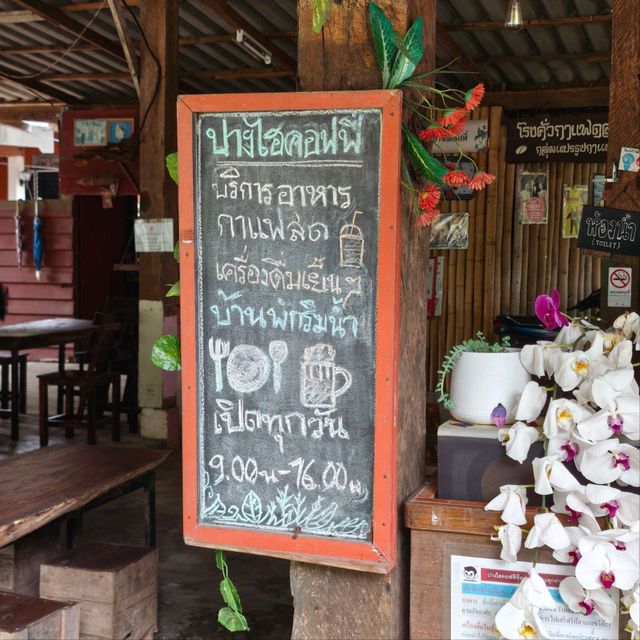 ปางไฮคอฟฟี่
บริการอาหาร
กาแฟสด
เครื่องดื่มเย็นๆ
บ้านพักริมน้ำ
เปิดทุกวัน
9.00น-16.00น
โรงคั่วกาแฟสด
ห้องน้ำ
(TOILET)